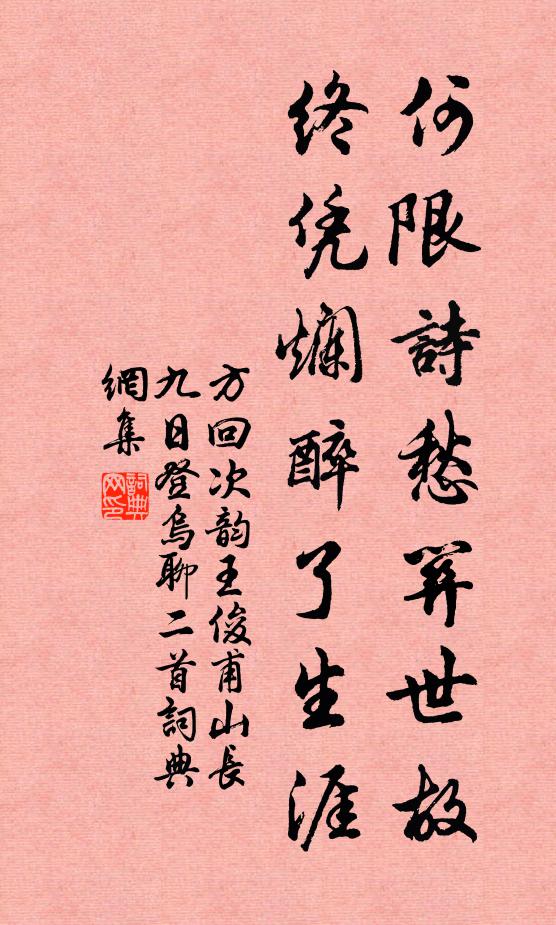 何限詩愁并世故
終凭爛醉了生涯
方回次韵王俊甫山長
九日登烏聊二首詞典
網集
詞典网印